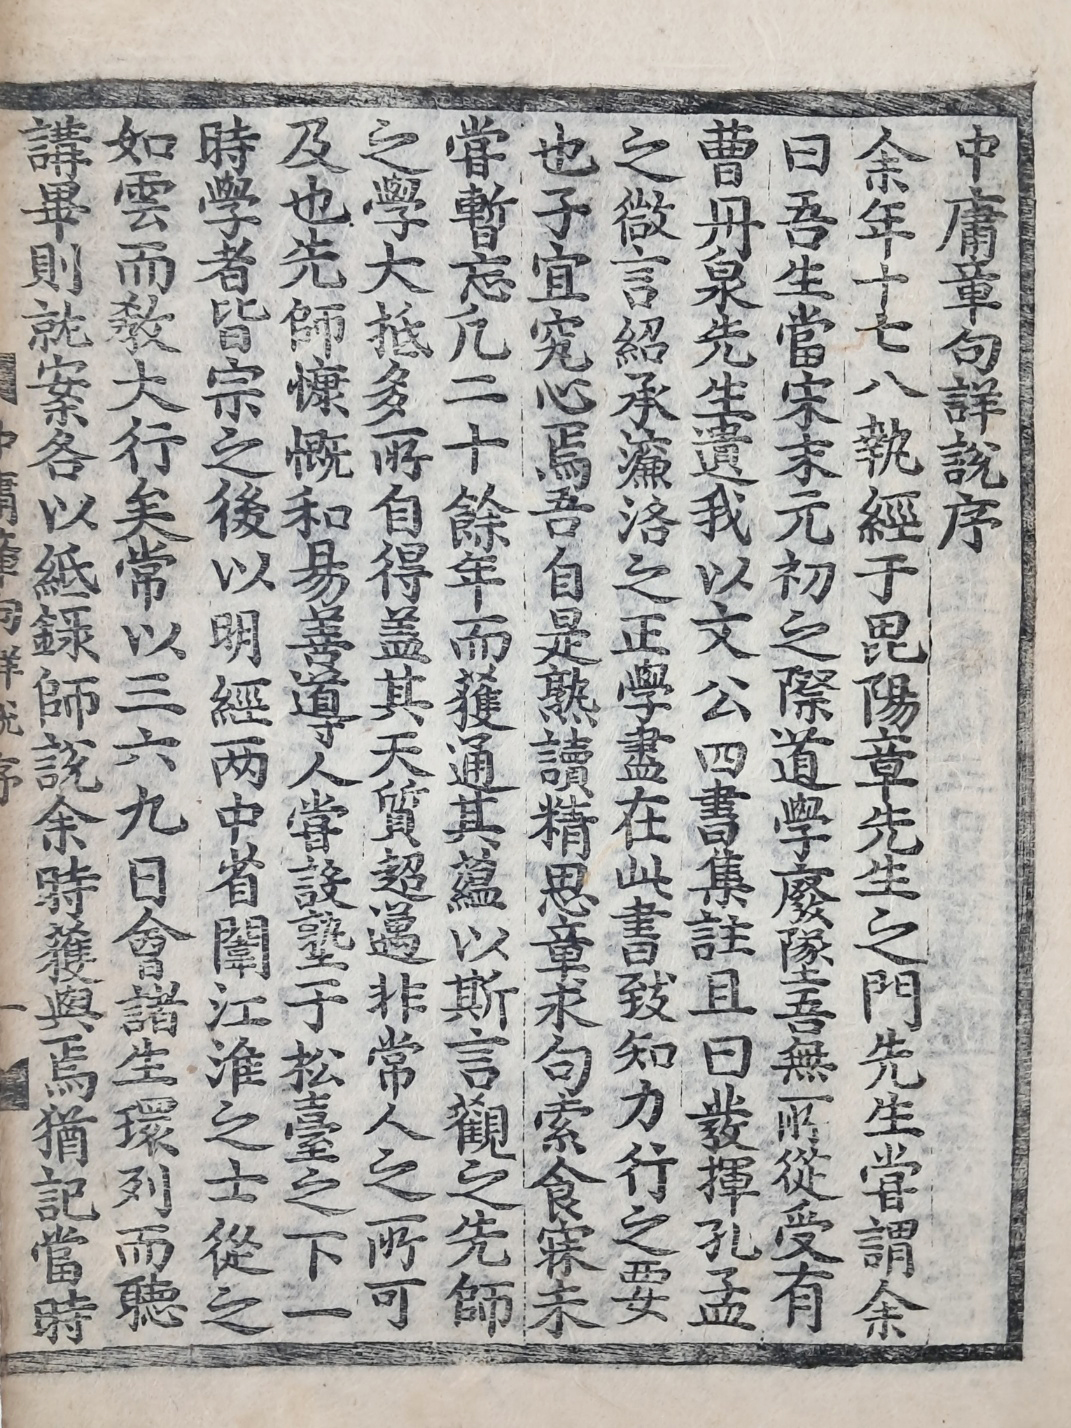 中庸章句詳說序
余年十七八執經于毘陽章先生之門先生嘗謂余
曰吾生當宋末元初之際道學廢墜吾無所從受有
曹丹泉先生遺我以文公四書集註且曰發揮孔孟
之微言紹承濂洛之正學盡在此書致知力行之要
也子宜究心焉吾自是熟讀精思章求句索食寐未
嘗暫忘凡二十餘年而獲通其蘊以斯言觀之先師
之學大抵多所自得盖其天質超邁非常人之所可
及也先師慷慨和易善導人嘗設塾于松臺之下一
時學者皆宗之後以明經两中省闈江淮之士從之
如雲而敎大行矣常以三六九日會諸生環列而聽
講畢則就案各以紙錄師說余時獲與焉猶記當時
中庸章句詳說序 一